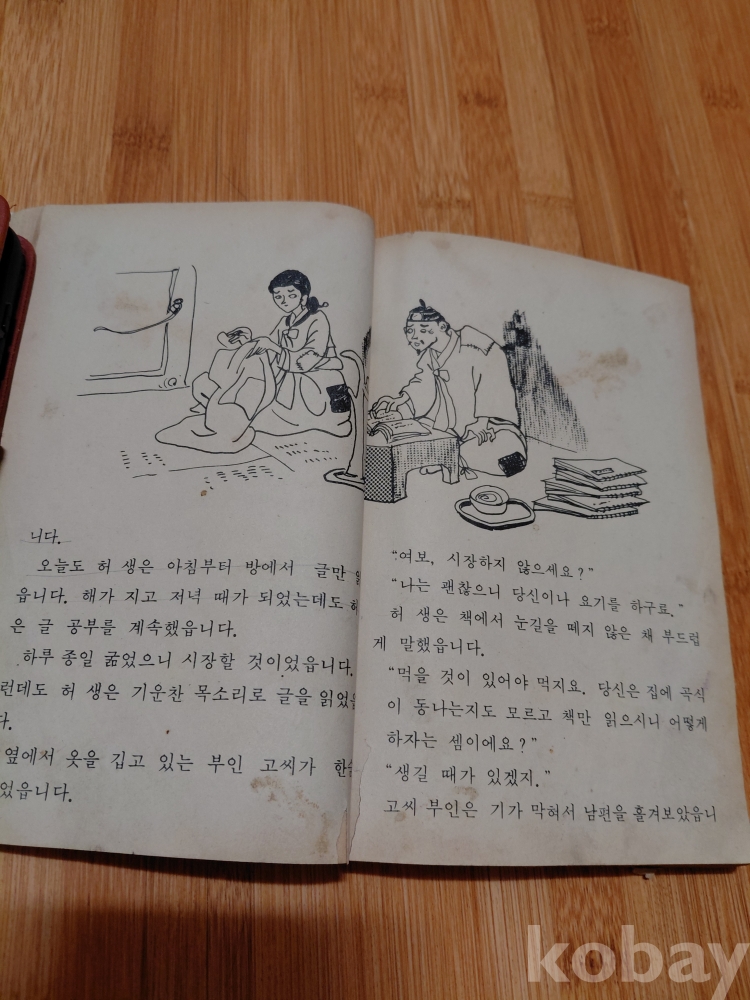 니다.
오늘도 허 생은 아침부터 방에서 글만 읽
읍니다. 해가 지고 저녁 때가 되었는데도 허
은 글 공부를 계속했읍니다.
하루 종일 굶었으니 시장할 것이었읍니다.
런데도 허 생은 기운찬 목소리로 글을 읽었읍
다.
옆에서 옷을 깁고 있는 부인 고씨가 한숨
었읍니다.
"여보, 시장하지 않으세요?"
"나는 괜찮으니 당신이나 요기를 하구료."
허 생은 책에서 눈길을 떼지 않은 채 부드럽
게 말했읍니다.
"먹을 것이 있어야 먹지요. 당신은 집에 곡식
이 동나는지도 모르고 책만 읽으시니 어떻게
하자는 셈이에요?"
"생길 때가 있겠지."
고씨 부인은 기가 막혀서 남편을 흘겨보았읍니
kobay